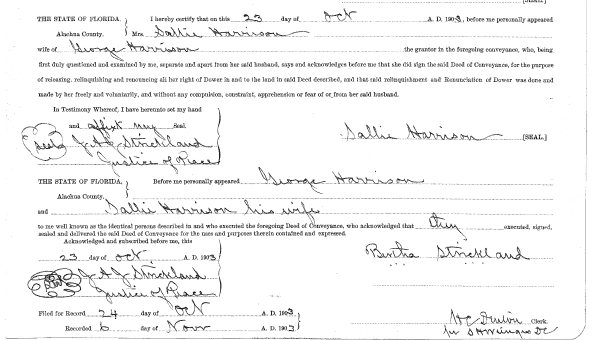 [SEAL]
THE STATE OF FLORIDA. I hereby certify that on this 23 day of Oct A. D. 1903, before me personally appeared
Alachua County. Mrs. Sallie Harrison
wife of George Harrison the grantor in the foregoing conveyance, who, being
first duly questioned and examined by me, separate and apart from her said husband, says and acknowledges before me that she did sign the said Deed of Conveyance, for the purpose
of releasing, relinquishing and renouncing all her right of Dower in and to the land in said Deed described, and that said relinquishment and Renunciation of Dower was done and
made by her freely and voluntarily, and without any compulsion, constraint, apprehension or fear of or from her said husband.
In Testimony Whereof, I have hereunto set my hand
and affixt my Seal
Seal J A J Strickland Sallie Harrison [SEAL.]
Justice of Peace
THE STATE OF FLORIDA. Before me personally appeared George Harrison
Alachua County.
and Sallie Harrison his wife
to me well known as the identical persons described in and who executed the foregoing Deed of Conveyance, who acknowledged that they executed, signed,
sealed and delivered the said Deed of Conveyance for the uses and purposes therein contained and expressed.
Acknowledged and subscribed before me, this
23 day of Oct A. D. 1903 Bertha Strickland
Seal J A J Strickland
Justice of Peace
Filed for Record 24 day of Oct A. D. 1903
Recorded 6 day of Novr A. D. 1903 Clerk.
DC